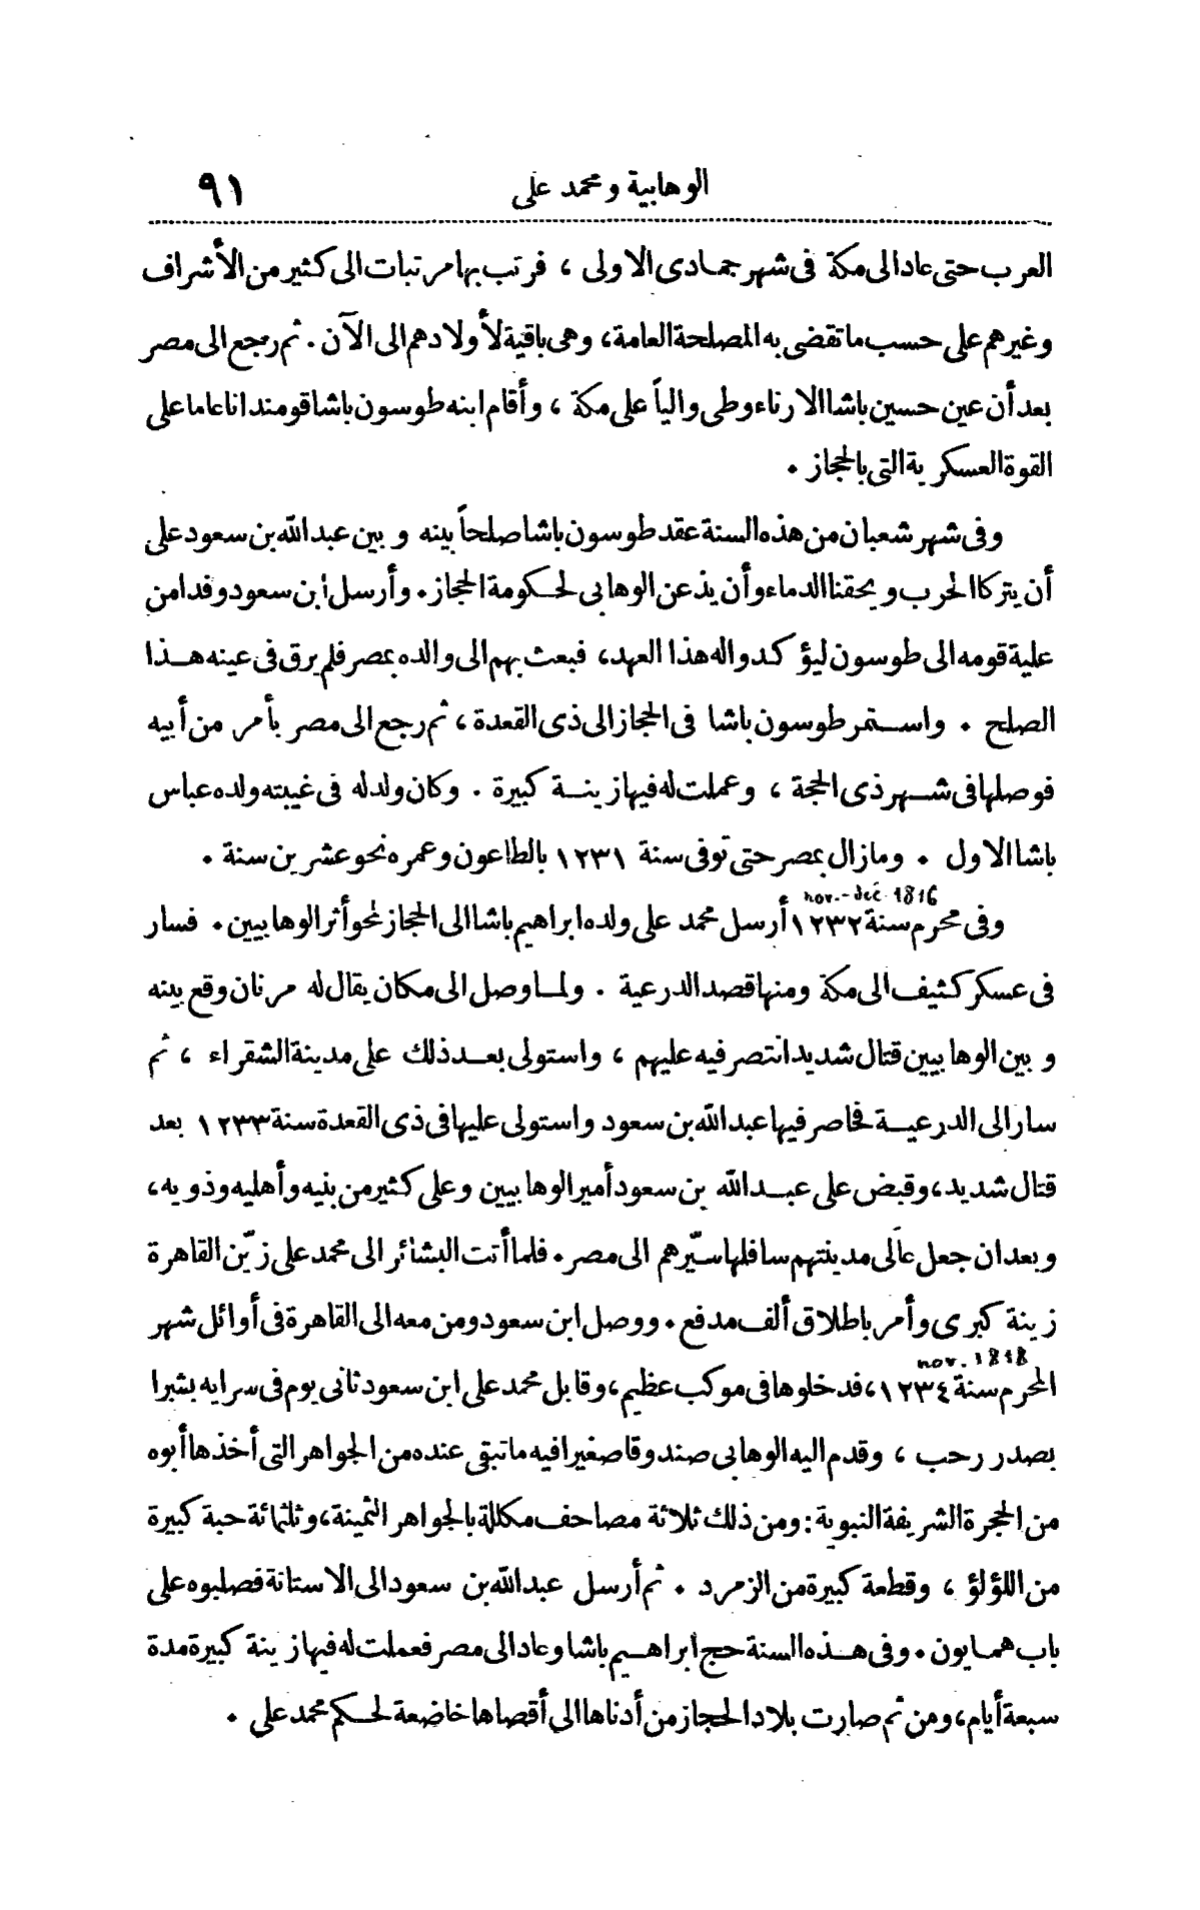 الوهابية ومحمد على ٩١
العرب حتى عاد الى مكة فى شهر جمادى الاولى ، فرتب بها مرتبات الى كثير من الأشراف
وغيرهم على حسب ما تقضى به المصلحة العامة، وهى باقية لأولادهم الى الآن. ثم رجع الى مصر
بعد أن عين حسين باشا الارناءوطى والياً على مكة ، وأقام ابنه طوسون باشا قومندانا عاما على
القوة العسكرية التى بالحجاز .
وفى شهر شعبان من هذه السنة عقد طوسون باشا صلحاً بينه وبين عبدالله بن سعود على
أن يتركا الحرب ويحقنا الدماء وأن يذعن الوهابى لحكومة الحجاز. وأرسل ابن سعود وفدا من
علية قومه الى طوسون ليؤكدوا له هذا العهد، فبعث بهم الى والده بمصر فلم يرق فى عينه هذا
الصلح . واستمر طوسون باشا فى الحجاز الى ذى القعدة ، ثم رجع الى مصر بأمر من أبيه
فوصلها فى شهر ذى الحجة ، وعملت له فيها زينة كبيرة . وكان ولد له فى غيبته ولده عباس
باشا الاول . ومازال بمصر حتى توفى سنة ١٢٣١ بالطاعون وعمره نحو عشرين سنة .
nov.-déc 1816
وفى محرم سنة ١٢٣٢ أرسل محمد على ولده ابراهيم باشا الى الحجاز لمحو أثر الوهابيين . فسار
فى عسكر كثيف الى مكة ومنها قصد الدرعية . ولما وصل الى مكان يقال له مرنان وقع بينه
وبين الوهابيين قتال شديد انتصر فيه عليهم ، واستولى بعد ذلك على مدينة الشقراء ، ثم
سار الى الدرعية فحاصر فيها عبدالله بن سعود واستولى عليها فى ذى القعدة سنة ١٢٣٣ بعد
قتال شديد، وقبض على عبدالله بن سعود أمير الوهابيين وعلى كثير من بنيه وأهليه وذويه،
وبعد ان جعل عالى مدينتهم سافلها سيّرهم الى مصر. فلما أتت البشائر الى محمد على زيّن القاهرة
زينة كبرى وأمر باطلاق ألف مدفع. ووصل ابن سعود ومن معه الى القاهرة فى أوائل شهر
nov. 1818
المحرم سنة ١٢٣٤، فدخلوها فى موكب عظيم، وقابل محمد على ابن سعود ثانى يوم فى سرايه بشبرا
بصدر رحب ، وقدم اليه الوهابى صندوقا صغيرا فيه ما تبقى عنده من الجواهر التى أخذها أبوه
من الحجرة الشريفة النبوية: ومن ذلك ثلاثة مصاحف مكللة بالجواهر الثمينة، وثلثمائة حبة كبيرة
من اللؤلؤ ، وقطعة كبيرة من الزمرد . ثم أرسل عبدالله بن سعود الى الاستانة فصلبوه على
باب همايون. وفى هذه السنة حج ابراهيم باشا وعاد الى مصر فعملت له فيها زينة كبيرة مدة
سبعة أيام، ومن ثم صارت بلاد الحجاز من أدناها الى أقصاها خاضعة لحكم محمد على .